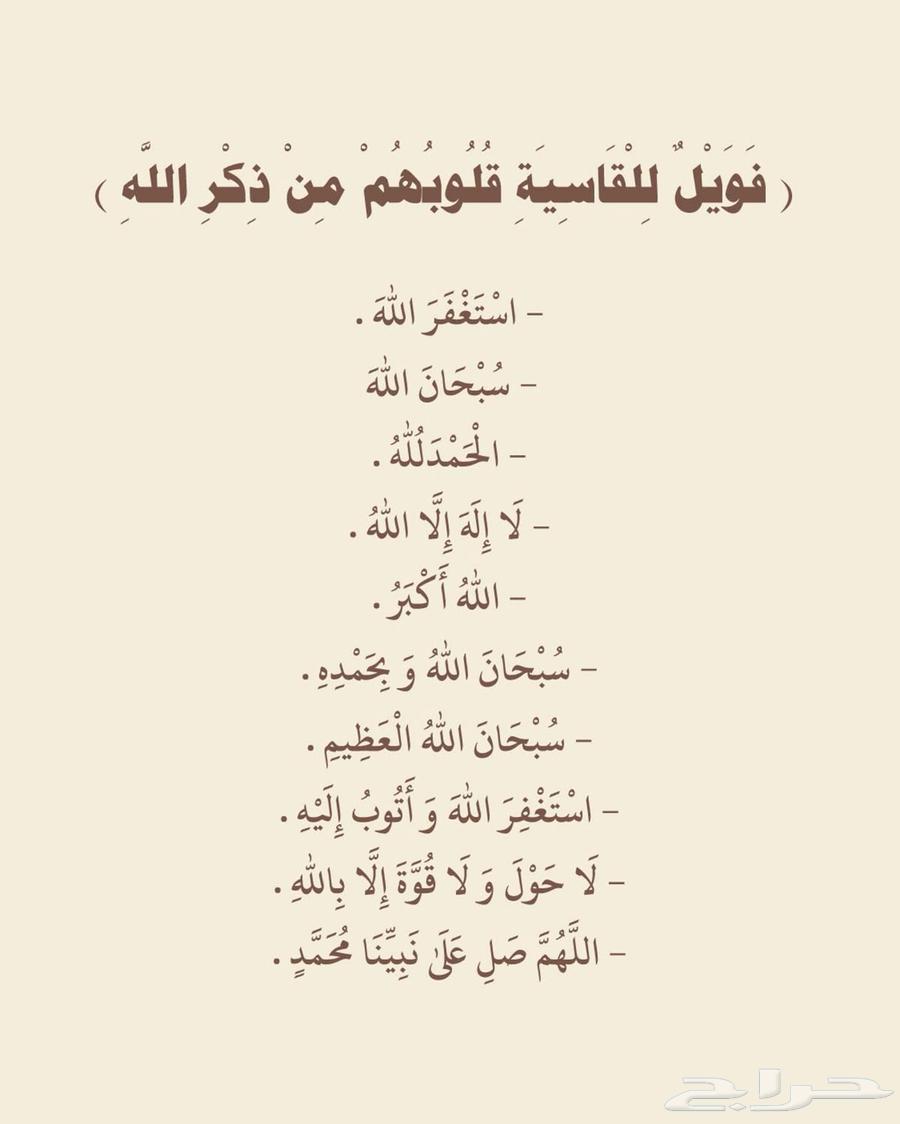 ( فَوَيْلٌ لِلْقَاسِيَةِ قُلُوبُهُمْ مِنْ ذِكْرِ اللَّهِ )
– اسْتَغْفَرَ اللهَ .
– سُبْحَانَ اللهَ
– الْحَمْدَلُلّهُ .
– لَا إِلَهَ إِلَّا اللهُ .
– اللهُ أَكْبَرُ .
– سُبْحَانَ اللهُ وَ بِحَمْدِهِ .
– سُبْحَانَ اللهُ الْعَظِيمِ .
– اسْتَغْفِرَ اللهَ وَ أَتُوبُ إِلَيْهِ .
– لَا حَوْلَ وَ لَا قُوَّةَ إِلَّا بِاللهِ .
– اللَّهُمَّ صَلِ عَلَىٰ نَبِيِّنَا مُحَمَّدٍ .
حراج